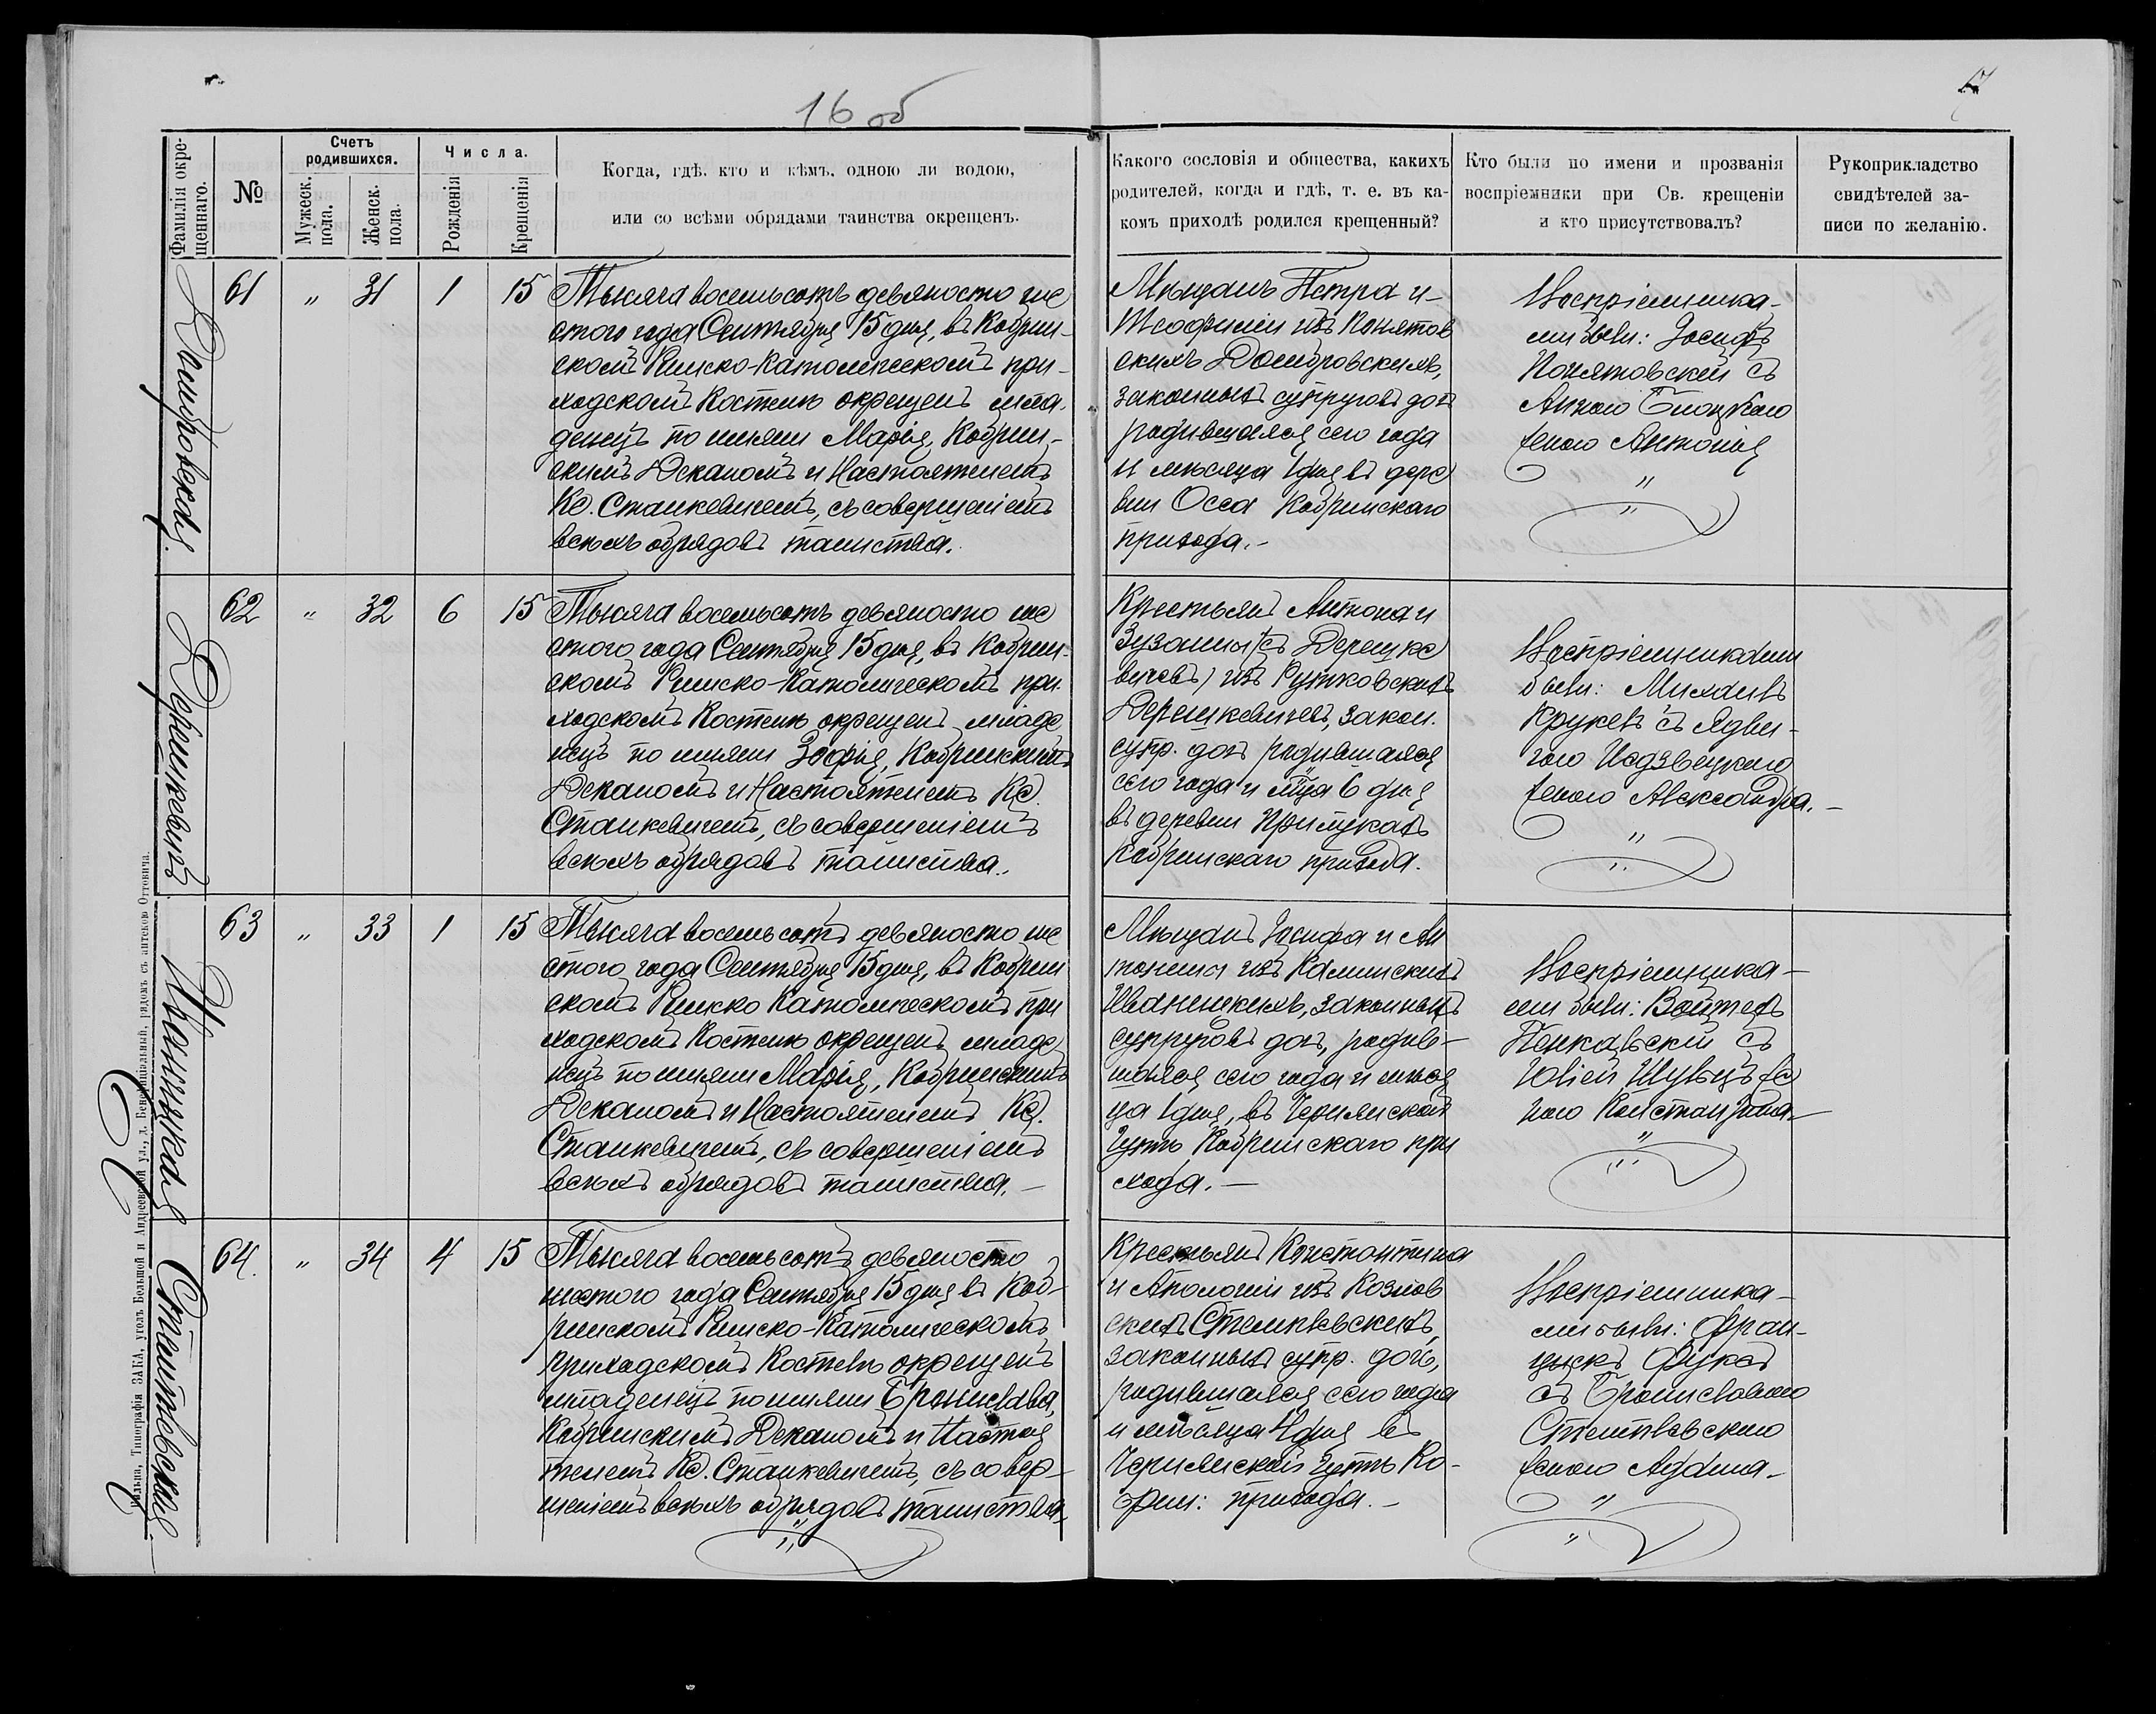 16 об
Фамилія окре-
щеннаго.
№
Счетъ
родившихся.
Мужеск.
пола.
Женск.
пола.
Числа.
Рожденія
Крещенія
Когда, гдѣ, кто и кѣмъ, одною ли водою,
или со всѣми обрядами таинства окрещенъ.
Какого сословія и общества, какихъ
родителей, когда и гдѣ, т. е. въ ка-
комъ приходѣ родился крещенный?
Кто были по имени и прозванія
воспріемники при Св. крещеніи
и кто присутствовалъ?
Рукоприкладство
свидѣтелей за-
писи по желанію.
Домбровская.
61 " 31 1 15
Тысяча восемьсотъ девяносто ше
стого года Сентября 15 дня, въ Кобрин-
скомъ Римско-Католическомъ при-
ходскомъ Костелѣ окрещенъ мла-
денецъ по имени Марія, Кобрин-
скимъ Деканомъ и Настоятелемъ
Кс. Станкевичемъ, съ совершеніемъ
всѣхъ обрядовъ таинства.
Мѣщанъ Петра и-
Теофиліи изъ Понятов
скихъ Домбровскихъ,
законныхъ супруговъ дочь
родившаяся сего года
и мѣсяца 1 дня въ дере
вни Осса Кобринскаго
прихода.-
Воспріемника-
ми были: Іосифъ
Понятовскій съ
Анною
женою Антонія
Дерешкевичъ
62 " 32 6 15
Тысяча восемьсотъ девяносто ше
стого года Сентября 15 дня, въ Кобрин-
скомъ Римско-Католическомъ при-
ходскомъ Костелѣ окрещенъ младе
нецъ по имени Зофія, Кобринскимъ
Деканомъ и Настоятелемъ Кс.
Станкевичемъ, съ совершеніемъ
всѣхъ обрядовъ таинства.
Крестьянъ Антона и
Зузанны (съ Дерешке
вичевъ) изъ Рутковскихъ
Дерешкевичевъ, закон.
супр. дочь родившаяся
сего года и мѣца 6 дня
въ деревни
Кобринскаго прихода.
Воспріемниками
были: Михаилъ
съ Ядви-
гою
женою Александра.-
Иваницкая
63 " 33 1 15
Тысяча восемьсотъ девяносто ше
стого года Сентября 15 дня, въ Кобрин
скомъ Римско Католическомъ при
ходскомъ Костелѣ окрещенъ младе
нецъ по имени Марія, Кобринскимъ
Деканомъ и Настоятелемъ Кс.
Станкевичемъ, съ совершеніемъ
всѣхъ обрядовъ таинства.-
Мѣщанъ Іосифа и Ан
тонины изъ Каминскихъ
Иваницкихъ, законныхъ
супруговъ дочь, родив-
шаяся сего года и мѣся
ца 1 дня, въ Чернянской
Гутѣ Кобринскаго при
хода.-
Воспріемника-
ми были: Войтехъ
Пенкальскій съ
Юліей Шульцъ же
ною Константина-
Стемплевская.
64. " 34 4 15
Тысяча восемьсотъ девяносто
шестого года Сентября 15 дня въ Коб-
ринскомъ Римско-Католическомъ
приходскомъ Костелѣ окрещенъ
младенецъ по имени Бронислава,
Кобринскимъ Деканомъ и Настоя
телемъ Кс. Станкевичемъ, съ совер-
шеніемъ всѣхъ обрядовъ таинства-
Крестьянъ Константина
и Аполоніи изъ Козлов
скихъ Стемплевскихъ,
законныхъ супр. дочь,
родившаяся сего года
и мѣсяца 4 дня въ
Чернянской Гутѣ Ко-
брин: прихода.-
Воспріемника-
ми были: Фран-
цискъ Фуксъ
съ Брониславою
Стемплевскою
женою Адама-
Вильна, Типографія ЗАКА, уголъ Большой и Андреевской ул., д. Бенефиціальный, рядомъ съ аптекою Оттовича.